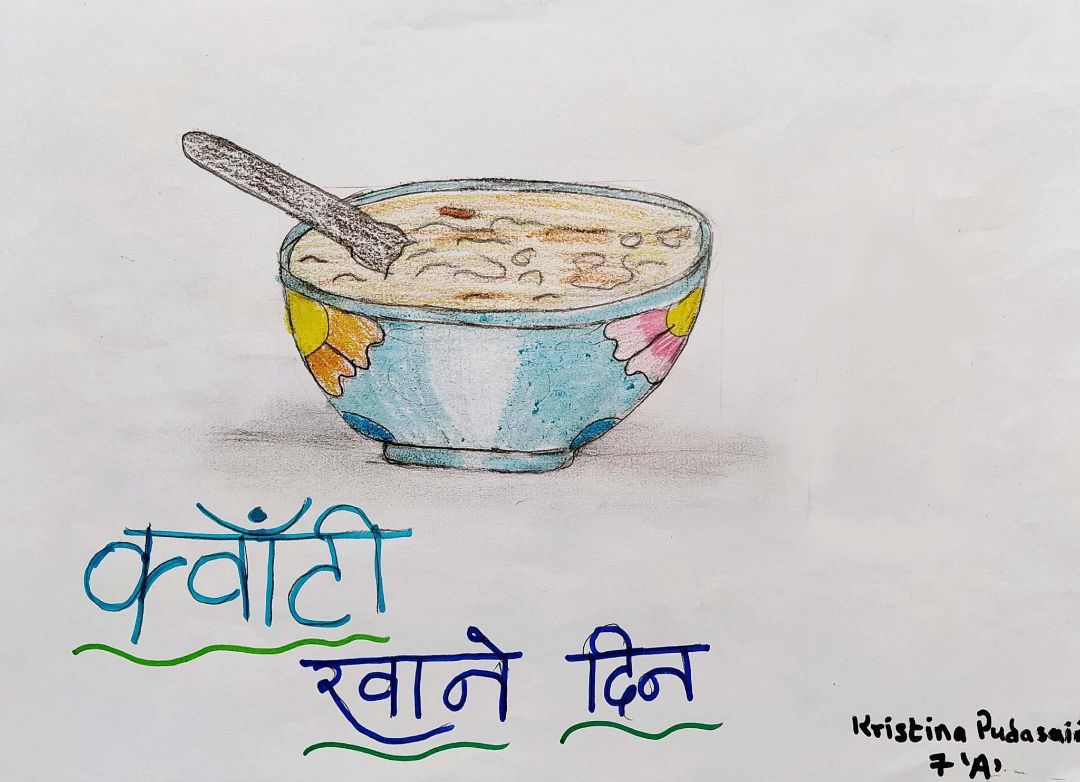 क्वाँटी
खाने दिन
Kristina Pudasai
7 'A'